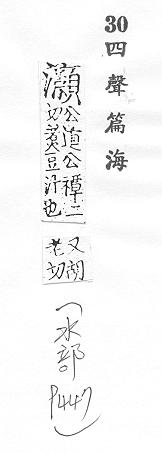 30 四聲篇海
灝
公道公禫二
切煮豆汁也
又胡
老切
(水部 P447)